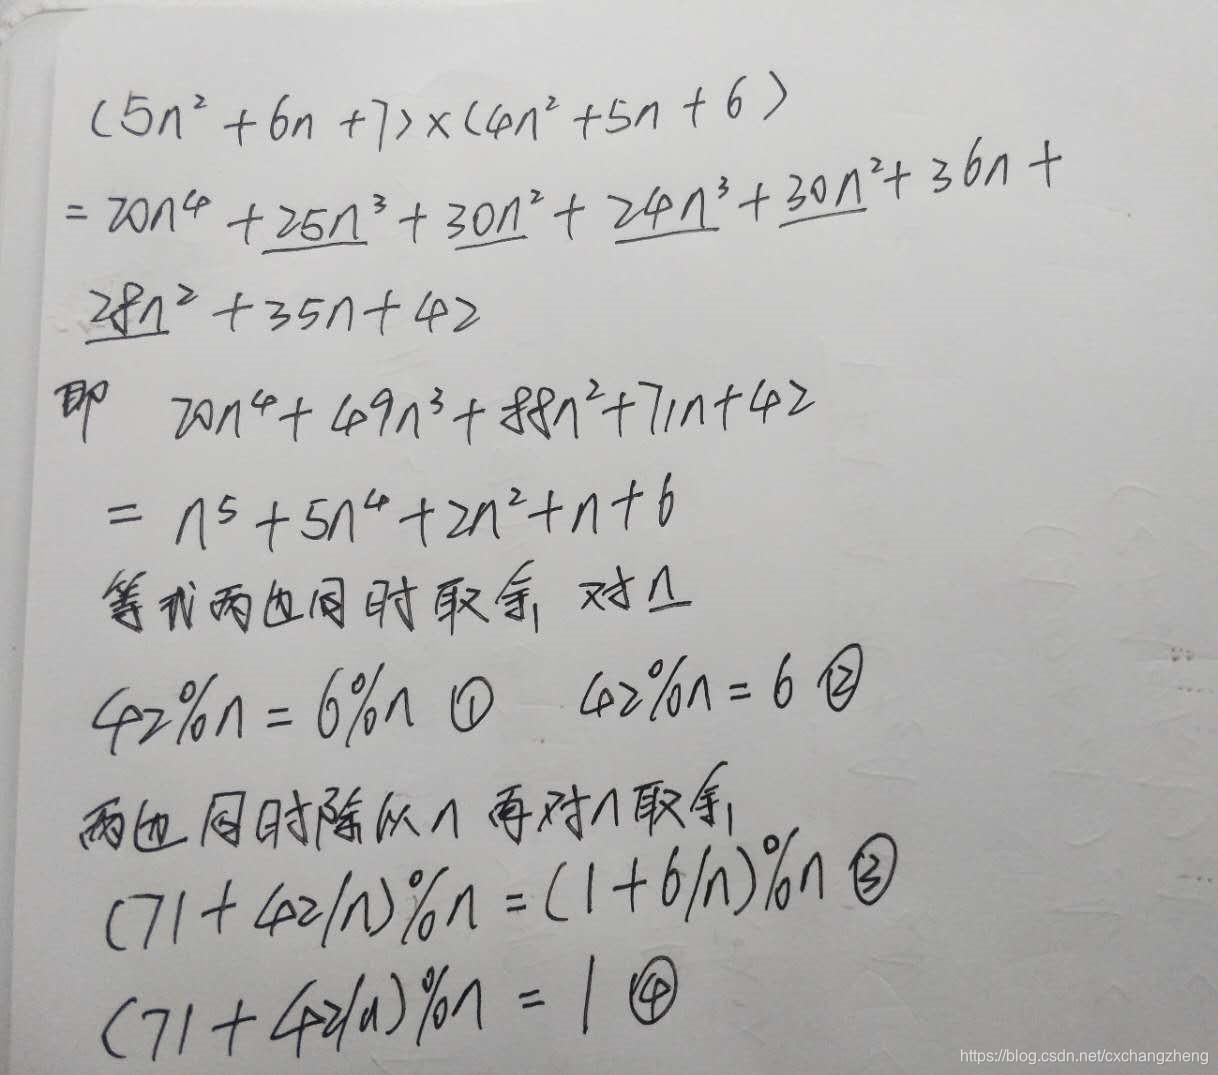 (5n² + 6n + 7) × (4n² + 5n + 6)
= 20n⁴ + 25n³ + 30n² + 24n³ + 30n² + 36n +
28n² + 35n + 42
即 20n⁴ + 49n³ + 88n² + 71n + 42
= n⁵ + 5n⁴ + 2n² + n + 6
等式两边同时取余 对n
42%n = 6%n ① 42%n = 6 ②
两边同时除以n 再对n取余
(71 + 42/n)%n = (1 + 6/n)%n ③
(71 + 42/n)%n = 1 ④
https://blog.csdn.net/cxchangzheng